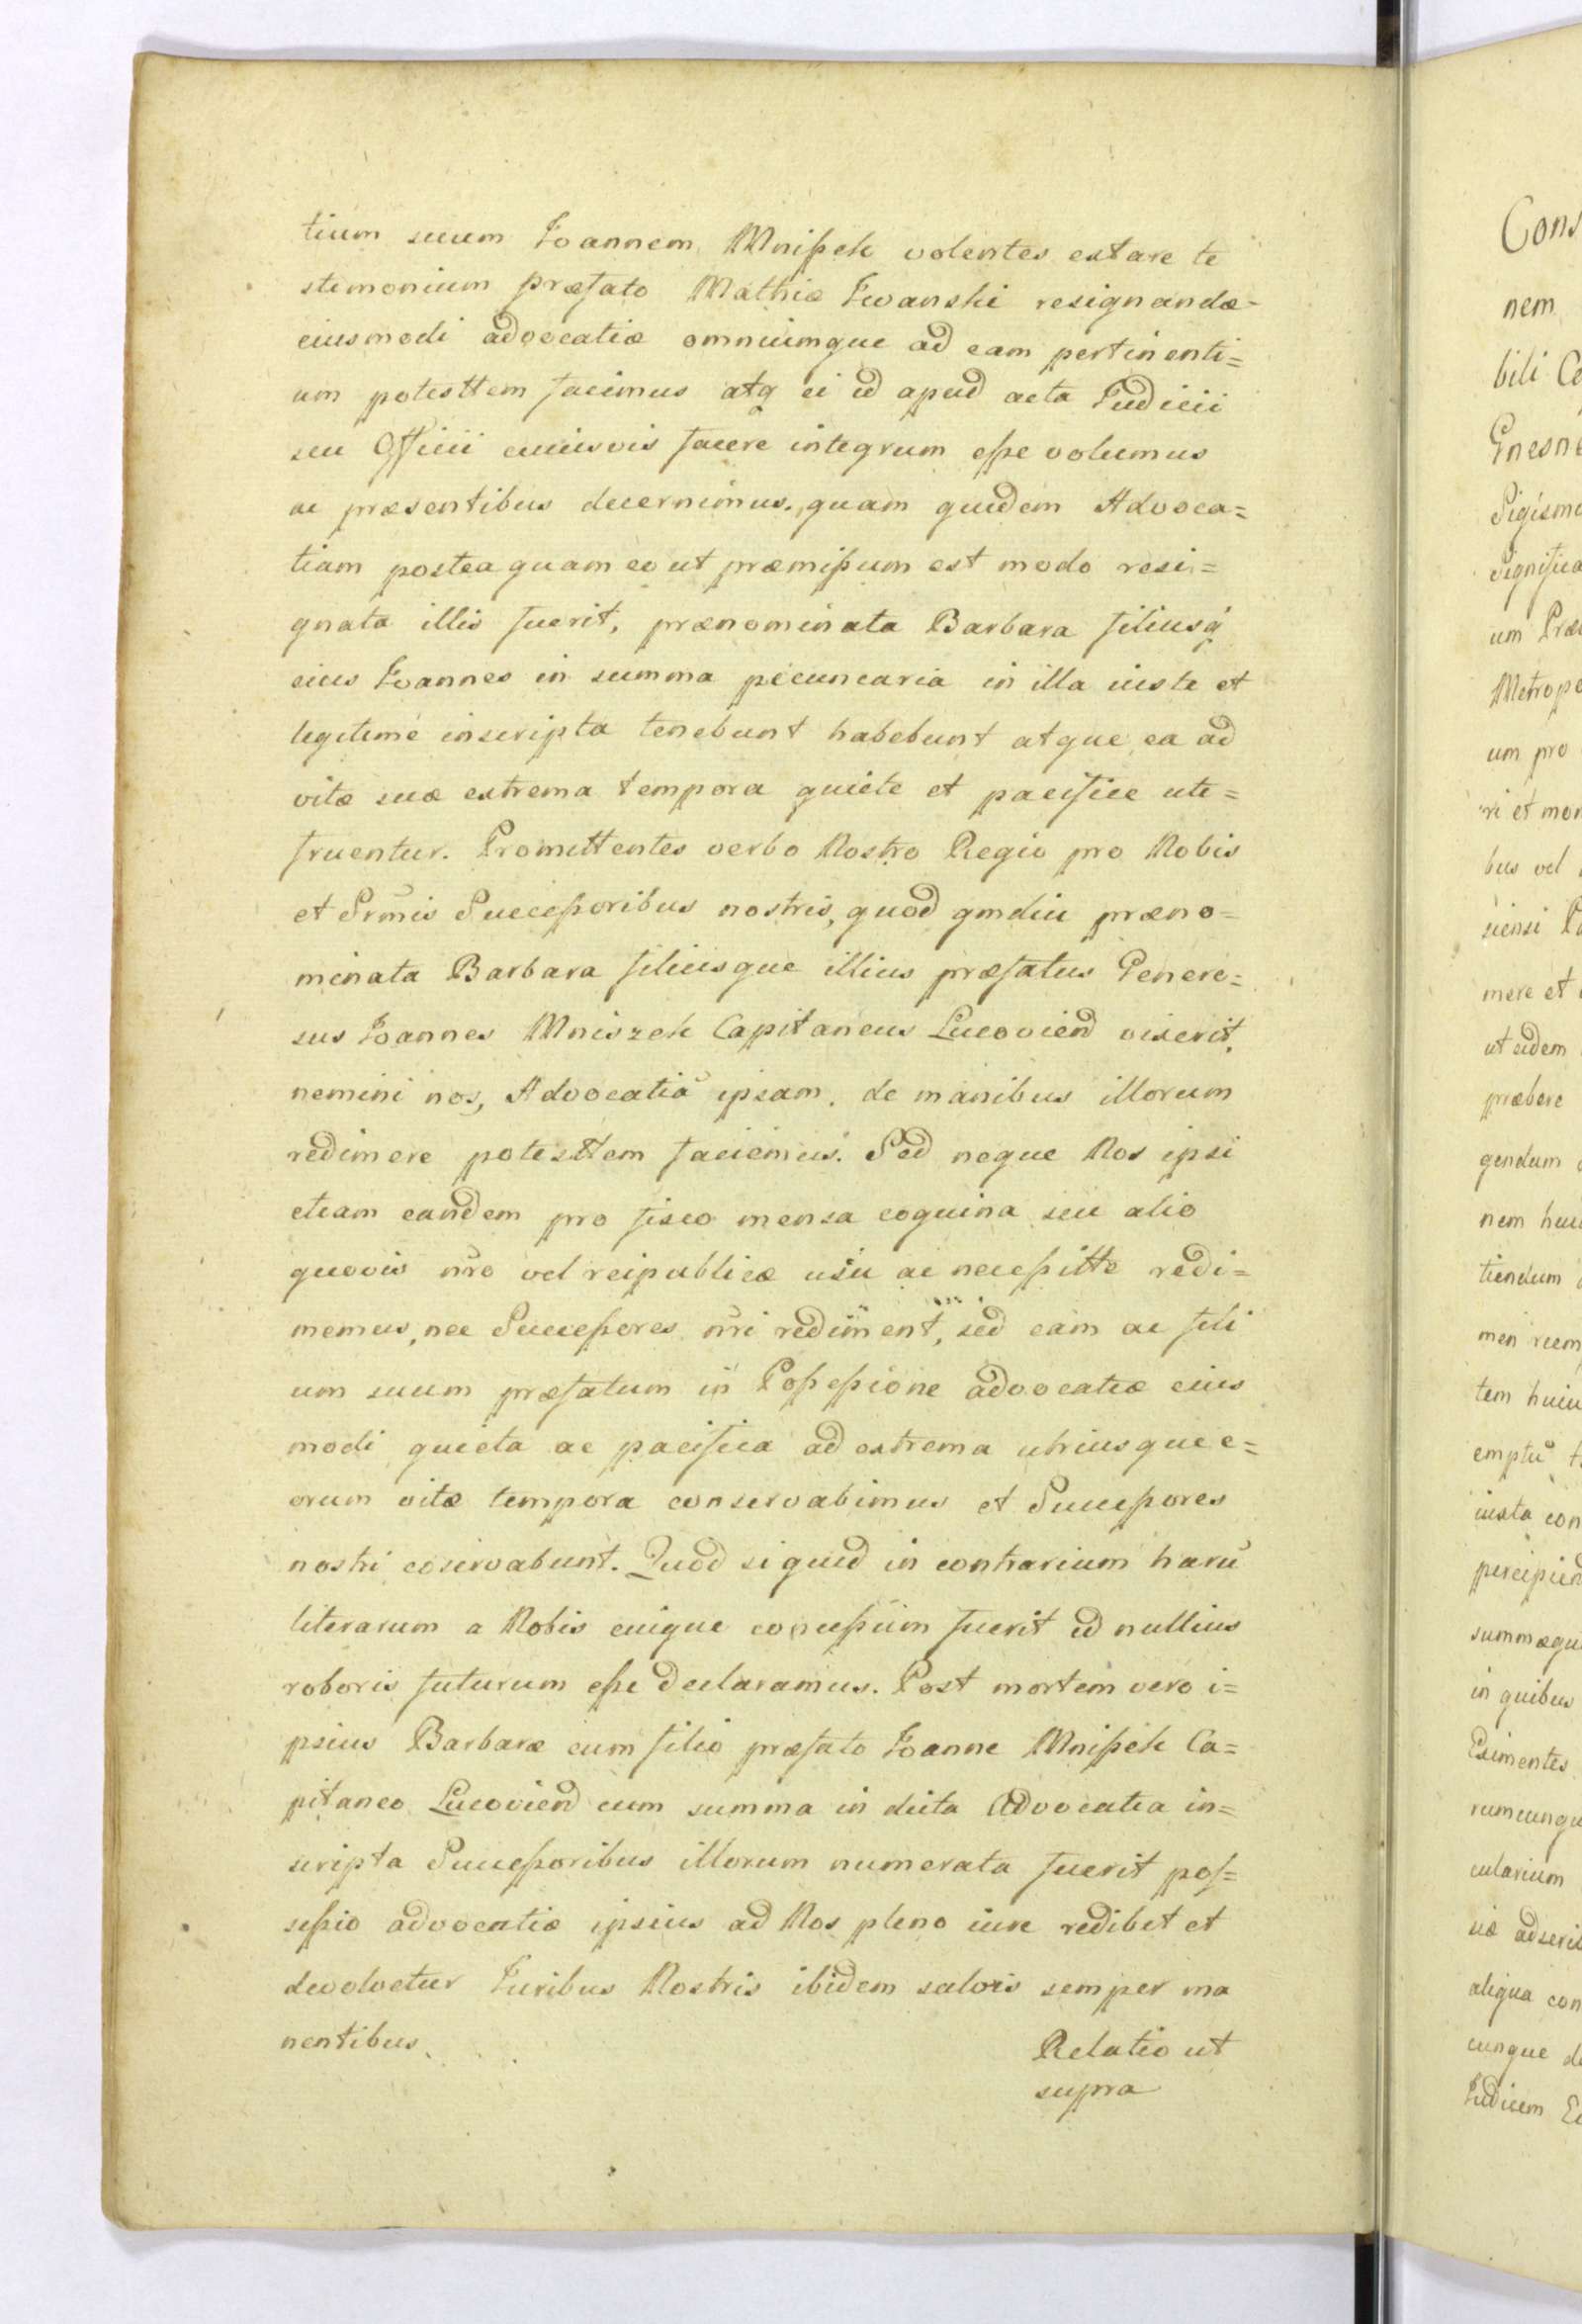 tium suum Joannem Mnißek volentes extare te
stimonium præfato Mathiæ Iwanski resignandæ=
eiusmodi advocatiæ omniumque ad eam pertinenti=
um potesttem facimus atq ei id apud acta Judicii
seu Officii cuiusvis facere integrum eße volumus
ac præsentibus decernimus, quam quidem Advoca=
tiam postea quam eo ut præmißum est modo resi=
gnata illis fuerit, prænominata Barbara filiusq
eius Joannes in summa pecunearia in illa iuste et
legitime inscripta tenebunt habebunt atque ea ad
vitæ suæ extrema tempora quiete et pacifice ute=
fruentur. Promittentes verbo Nostro Regio pro Nobis
et Srmis Succeßoribus nostris, quod qmdiu præno=
minata Barbara filiusque illius præfatus Genero=
sus Joannes Mniszek Capitaneus Lucoviend vixerit,
nemini nos, Advocatiā ipsam, de manibus illorum
redimere potesttem faciemus. Sed neque Nos ipsi
etiam eandem pro fisco mensa coquina seu alio
quovis nr̄o vel reipublicæ usu ac neceßitte redi=
memus, nec Succeßores nr̄i rediment, sed eam ac fili
um suum præfatum in Poßeßione advocatiæ eius
modi quieta ac pacifica ad extrema utriusque e=
orum vitæ tempora conservabimus et Succeßores
nostri coservabunt. Quod si quid in contrarium harū
literarum a Nobis cuique conceßum fuerit id nullius
roboris futurum eße declaramus. Post mortem vero i=
psius Barbaræ cum filio præfato Joanne Mnißek Ca=
pitaneo Lucoviend cum summa in dicta Advocatia in=
scripta Succeßoribus illorum numerata fuerit pos=
seßio advocatiæ ipsius ad Nos pleno iure redibet et
devolvetur Juribus Nostris ibidem salvis semper ma
nentibus.
Relatio ut
supra
Cons
nem
bili
Gnesne
Sigismu
Significa
um Præ
Metropo
um pro
ri et mor
bus vel
siensi
mere et
ut eidem
præbere
gendum
nem huiu
tiendum
men reem
tem huiu
emptū
iuxta con
percipien
summæqu
in quibus
Eximentes
rumcunqu
cularium
siæ adscri
aliqua con
cunque de
Judicem